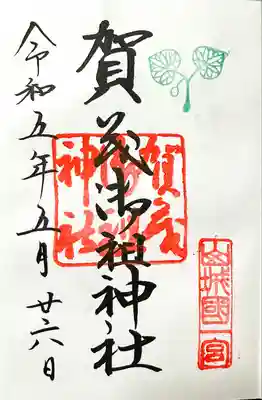 賀茂御祖神社
令和五年五月廿六日
賀茂
御祖
神社
山城國
一宮